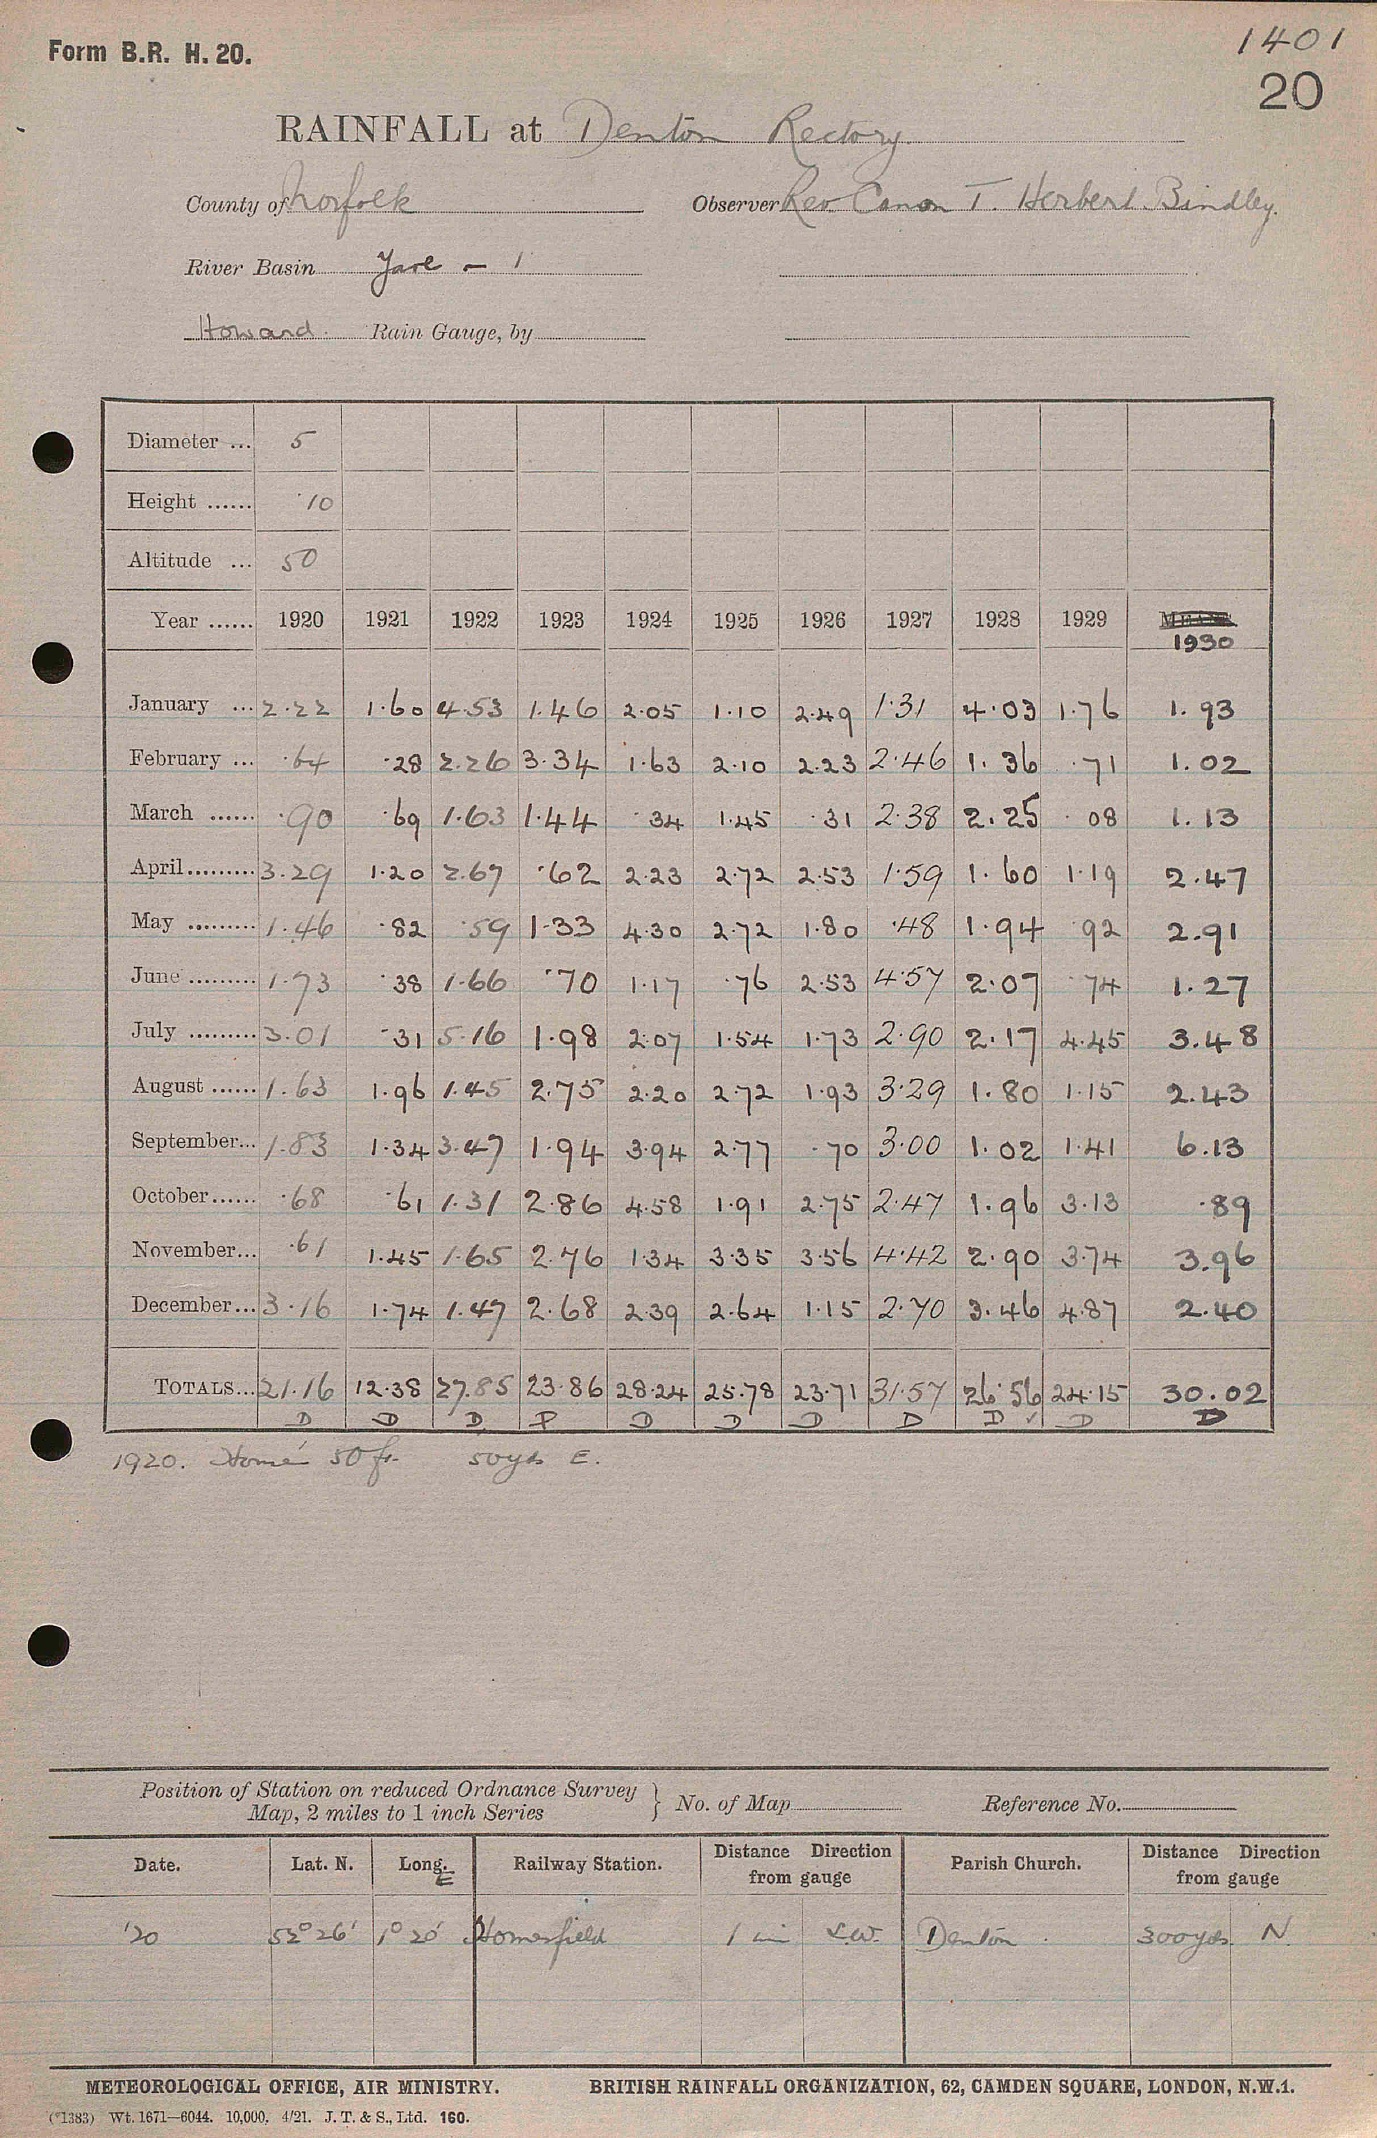 Form B.R. H. 20.
1401
20
RAINFALL at Denton Rectory.
County of Norfolk Observer Rev. Canon T. Herbert Bindley.
River Basin Yare - 1
Howard. Rain Gauge, by
Diameter ... 5
Height ...... ·10
Altitude ... 50
Year ...... 1920 1921 1922 1923 1924 1925 1926 1927 1928 1929 1930
January ... 2.22 1.60 4.53 1.46 2.05 1.10 2.49 1.31 4.03 1.76 1.93
February ... .64 .28 2.26 3.34 1.63 2.10 2.23 2.46 1.36 .71 1.02
March ...... .90 .69 1.63 1.44 .34 1.45 .31 2.38 2.25 .08 1.13
April......... 3.29 1.20 2.67 .62 2.23 2.72 2.53 1.59 1.60 1.19 2.47
May ......... 1.46 .82 .59 1.33 4.30 2.72 1.80 .48 1.94 .92 2.91
June ......... 1.73 .38 1.66 .70 1.17 .76 2.53 4.57 2.07 .74 1.27
July ......... 3.01 .31 5.16 1.98 2.07 1.54 1.73 2.90 2.17 4.45 3.48
August ...... 1.63 1.96 1.45 2.75 2.20 2.72 1.93 3.29 1.80 1.15 2.43
September... 1.83 1.34 3.47 1.94 3.94 2.77 .70 3.00 1.02 1.41 6.13
October...... .68 .61 1.31 2.86 4.58 1.91 2.75 2.47 1.96 3.13 .89
November... .61 1.45 1.65 2.76 1.34 3.35 3.56 4.42 2.90 3.74 3.96
December... 3.16 1.74 1.47 2.68 2.39 2.64 1.15 2.70 3.46 4.87 2.40
TOTALS... 21.16 12.38 27.85 23.86 28.24 25.78 23.71 31.57 26.56 24.15 30.02
D D D P D D D D D ✓ D D
1920. Home 50 ft. 50 yds E.
Position of Station on reduced Ordnance Survey
Map, 2 miles to 1 inch Series } No. of Map Reference No.
Date. Lat. N. Long. E Railway Station. Distance Direction from gauge Parish Church. Distance Direction from gauge
'20 52° 26' 1° 20' Homersfield 1 mi S.W. Denton 300 yds. N.
METEOROLOGICAL OFFICE, AIR MINISTRY. BRITISH RAINFALL ORGANIZATION, 62, CAMDEN SQUARE, LONDON, N.W.1.
(*1383) Wt. 1671—6044. 10,000. 4/21. J. T. & S., Ltd. 160.